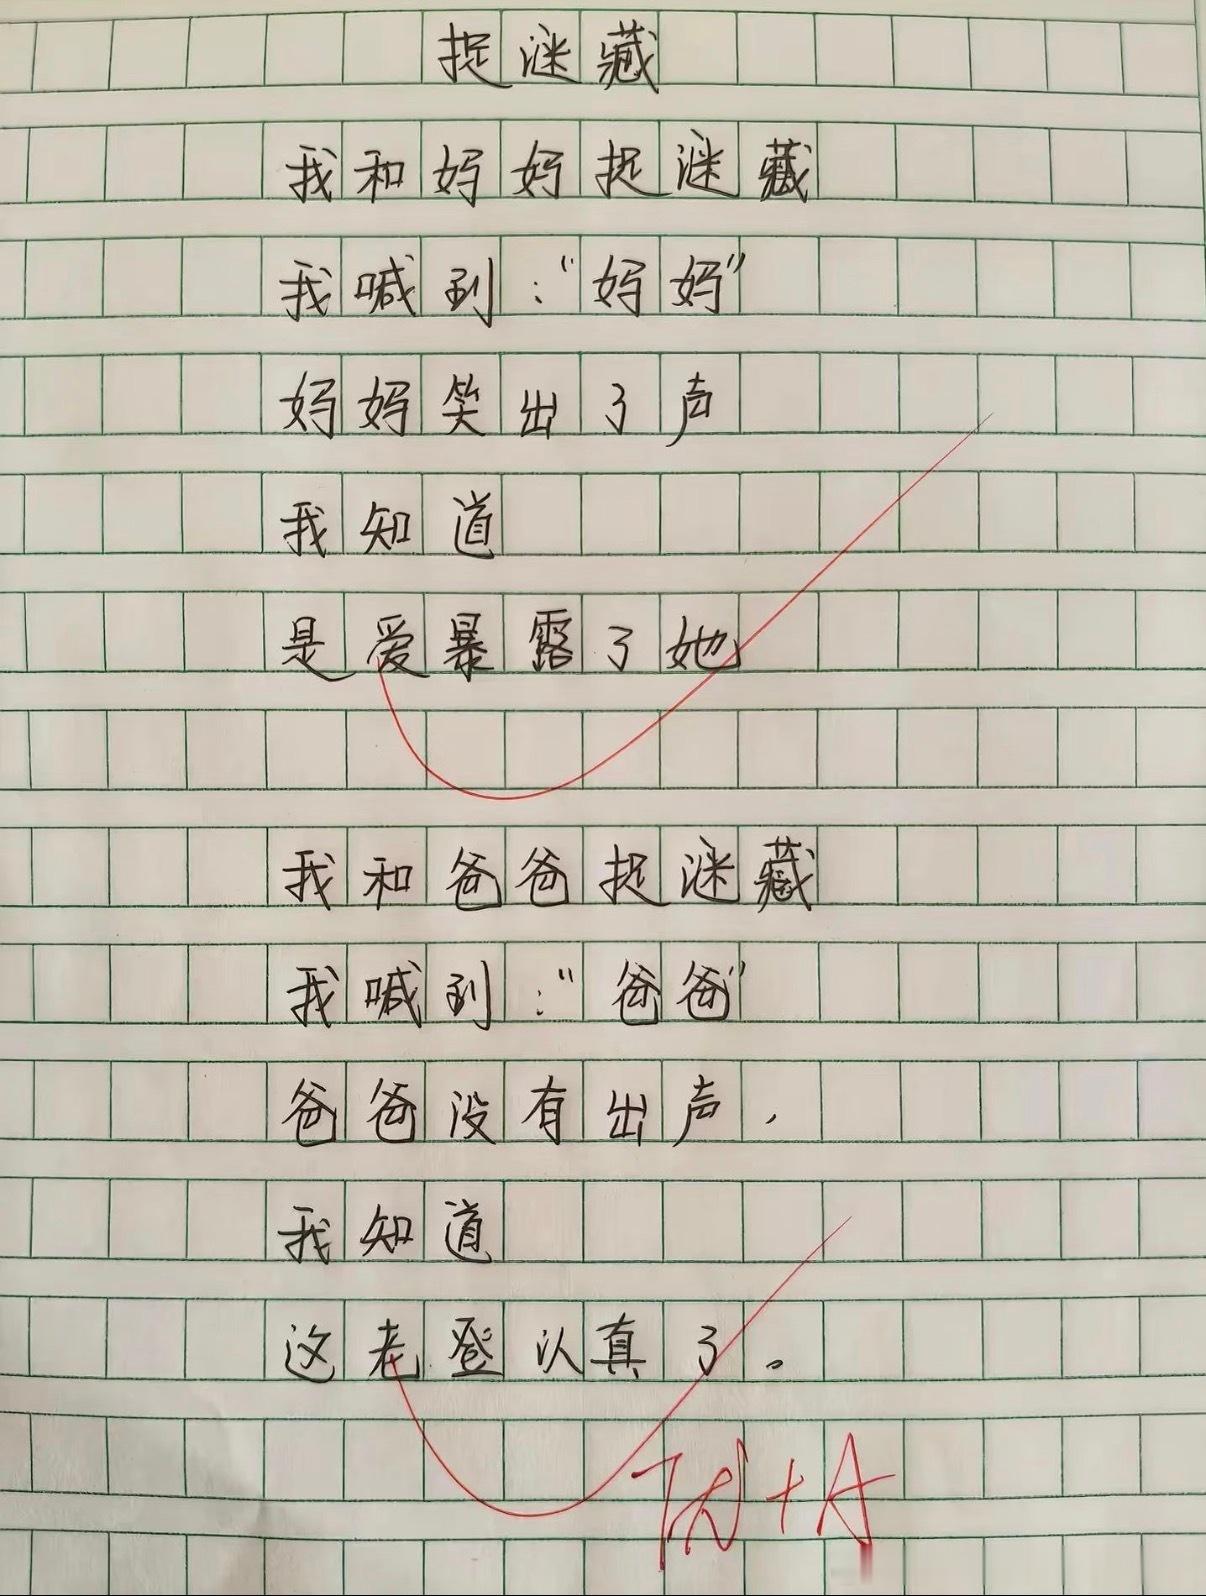 捉迷藏
我和妈妈捉迷藏
我喊到:“妈妈”
妈妈笑出了声
我知道
是爱暴露了她
我和爸爸捉迷藏
我喊到:“爸爸”
爸爸没有出声.
我知道
这老登认真了。